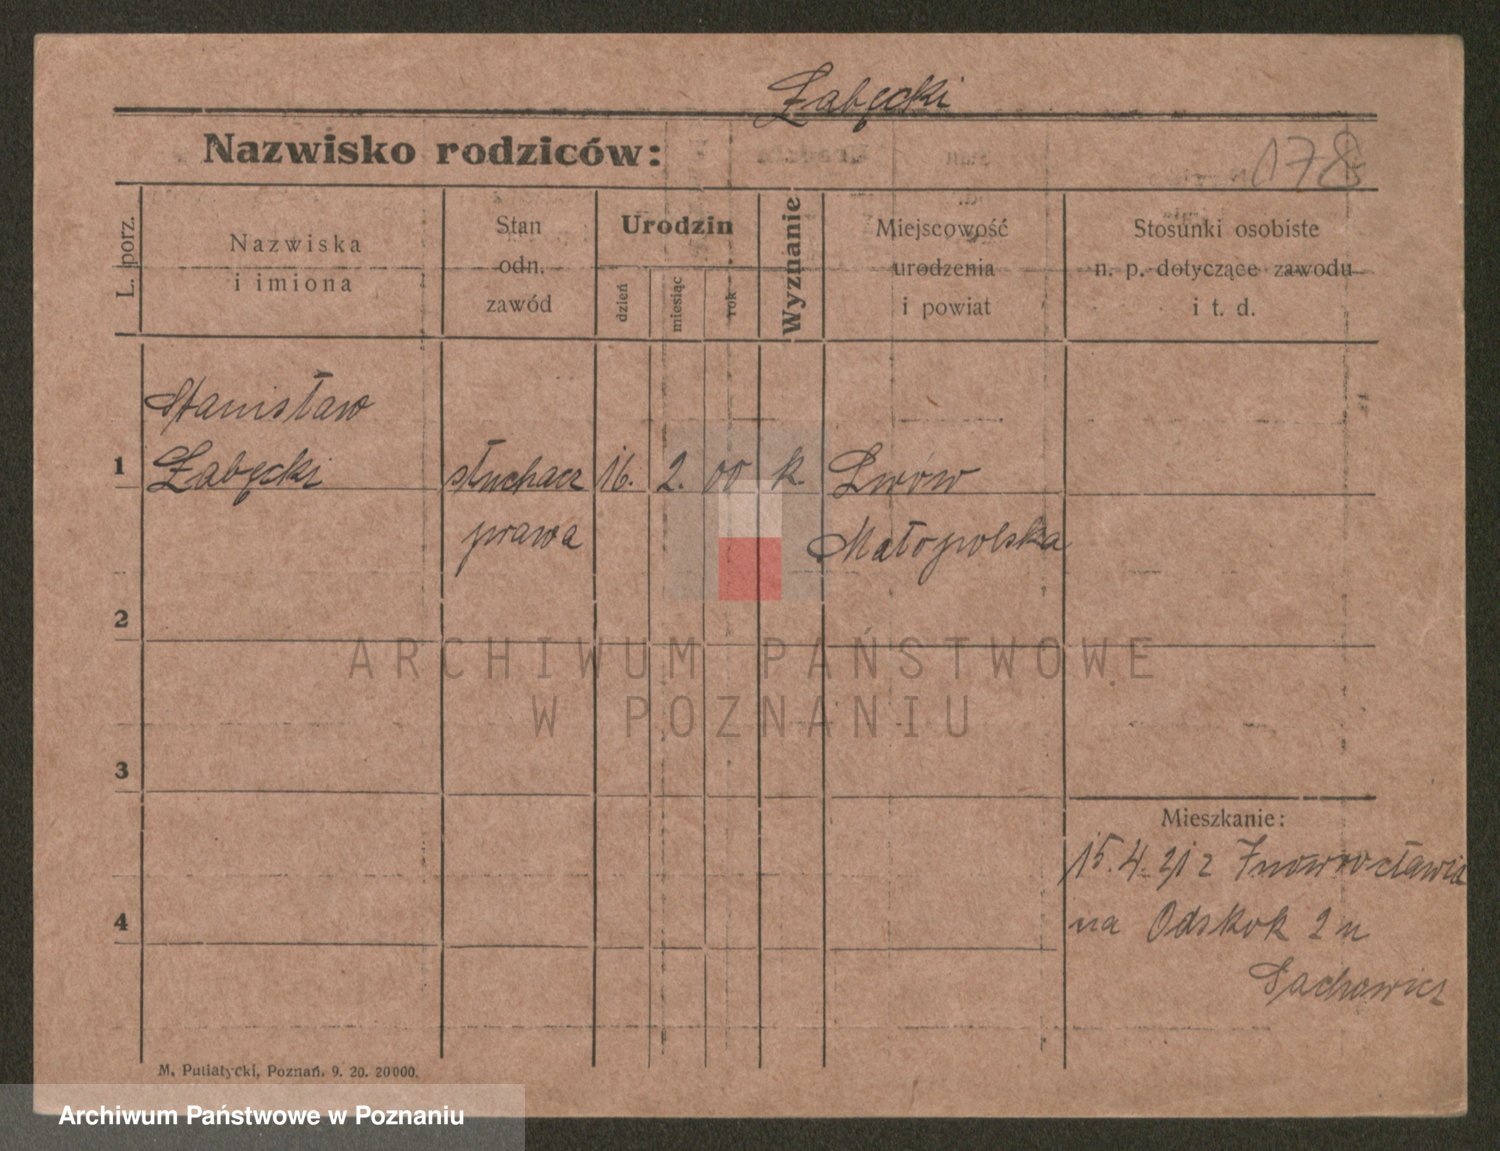 Żabęcki
Nazwisko rodziców:
178
L. porz.
Nazwiska
i imiona
Stan
odn.
zawód
Urodzin
dzień
miesiąc
rok
Wyznanie
Miejscowość
urodzenia
i powiat
Stosunki osobiste
n. p. dotyczące zawodu
i t. d.
Stanisław
1 Żabęcki słuchacz 16. 2. 00 k. Lwów
prawa Małopolska
2
ARCHIWUM PAŃSTWOWE
W POZNANIU
3
Mieszkanie:
15.4.21 z Inowrocławia
4
na Odskok 2 u
M. Putiatycki, Poznań. 9. 20. 20000.
Archiwum Państwowe w Poznaniu